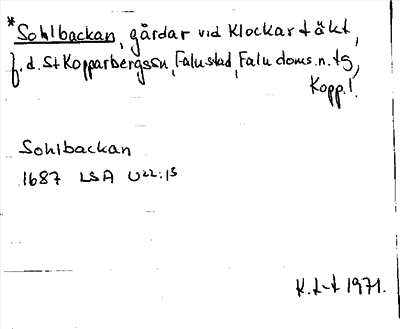 *Sohlbackan, gårdar vid Klockartäkt,
f.d. St Kopparbergs sn, Falu stad, Falu doms.n. tg,
Kopp. l.
Sohlbackan
1687 LSA U22:13
K.L-t 1971.